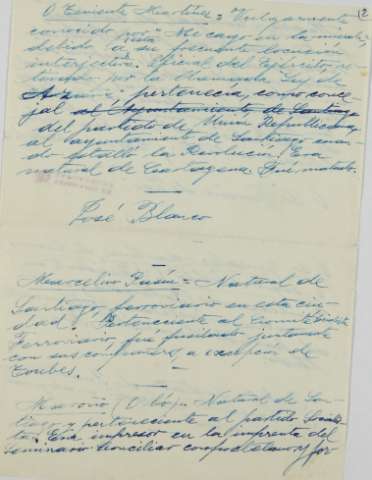 (2
O Teniente Martínez = Vulgarmente
conocido por "Me cago en la
debido a su frecuente locución
interjectiva. Oficial del Ejército re-
tirado por la llamada Ley de
Azaña; pertenecía, como conce-
jal al Ayuntamiento de Santiago
del partido de Unión Republicana
al ayuntamiento de Santiago cuan-
do estalló la Revolución. Era
natural de Cartagena. Fue matado.
José Blanco
Marcelino = Natural de
Santiago, ferroviario en esta ciu-
dad. Perteneciente al Comité
Ferroviario, fué fusilado juntamente
con sus compañeros, a excepción de
Natural de San-
tiago y perteneciente al partido Socialis-
ta. Era impresor en la imprenta del
Seminario Conciliar compostelano y for